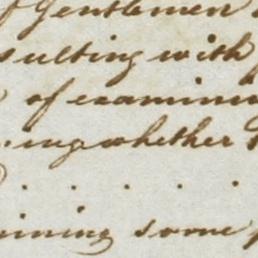 f Gentlemen
sulting with
of examinin
ing whether
ining some